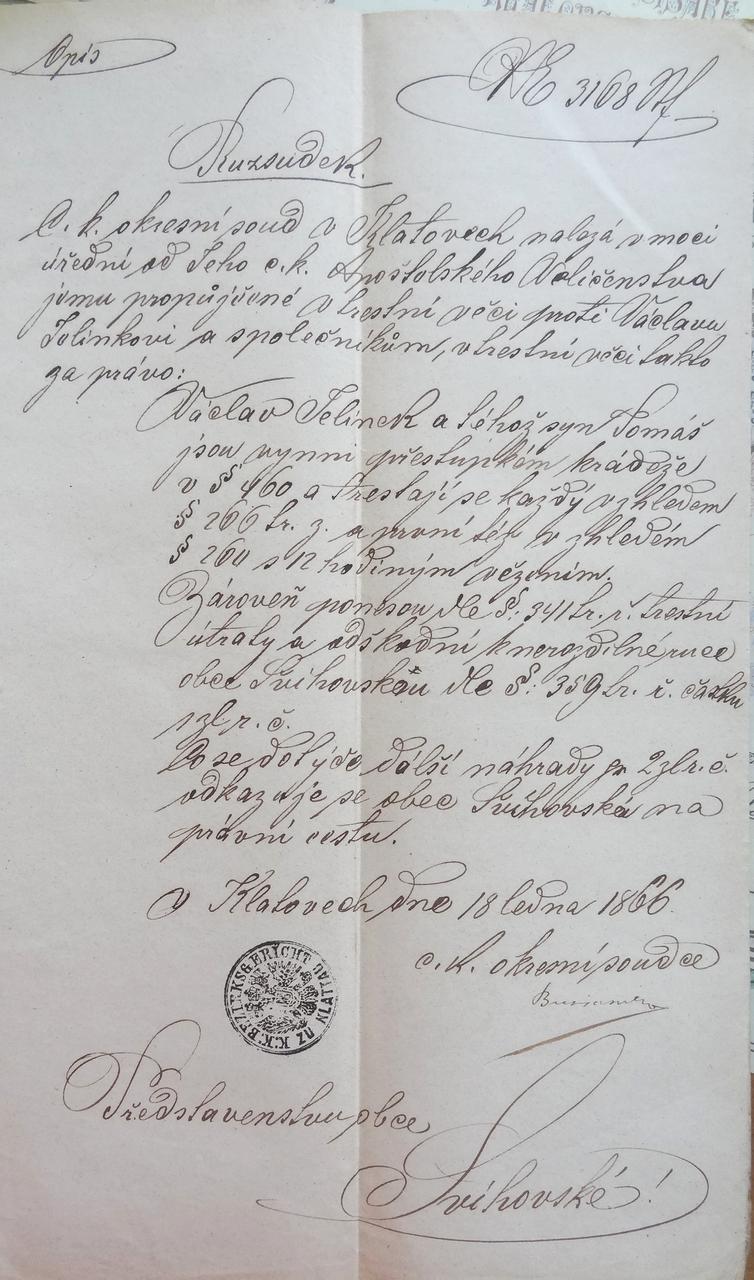 Opis
3168
Rozsudek.
C. k. okresní soud v Klatovech nalezá v moci
úřední od Jeho c. k. Apoštolského Veličenstva
jemu propůjčené v trestní věci proti Václavu
Jelínkovi a společníkům, v trestní věci takto
za právo:
Václav Jelínek a téhož syn Tomáš
jsou vynni přestupkem krádeže
v §§ 460 a trestají se každý vzhledem
§§ 266 tr. z. a první též vzhledem
§§ 260 s 12 hodiným vězením.
Zároveň ponesou dle §: 341 tr. ř. trestní
útraty a odškodní k nerozdílné ruce
obec Švihovskou dle §: 359 tr. ř. částku
1 zl. r. č.
Co se dotýče další náhrady pr 2 zl. r. č.
odkazuje se obec Švihovská na
právní cestu.
V Klatovech dne 18 ledna 1866.
c. k. okresní soudce
K.K. BEZIRKSGERICHT ZU KLATTAU
Představenstvu obce
Švihovské!